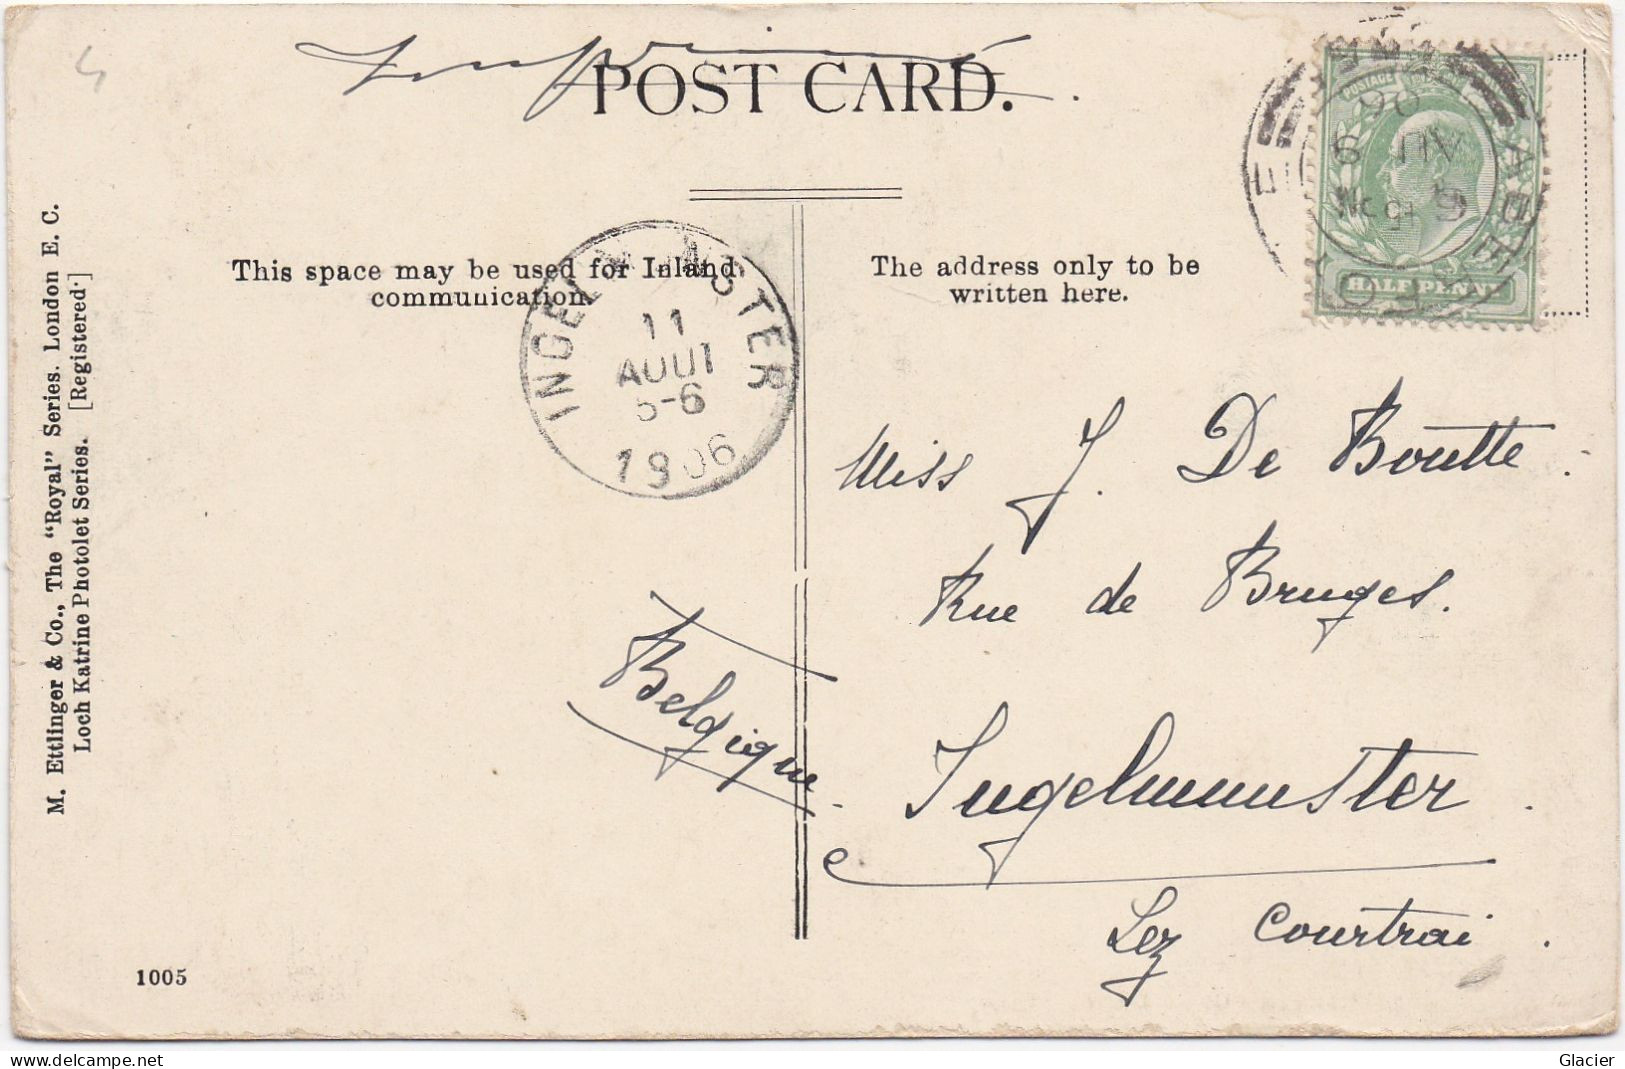 Imprimé
POST CARD.
This space may be used for Inland
communication.
The address only to be
written here.
INGELMUNSTER
11
AOUT
5-6
1906
HALF PENNY
Miss J. De Boutte.
Rue de Bruges.
Ingelmunster.
Lez Courtrai.
Belgique.
M. Ettlinger & Co., The "Royal" Series. London E. C.
Loch Katrine Photolet Series. [Registered.]
1005
Glacier
delcampe.net